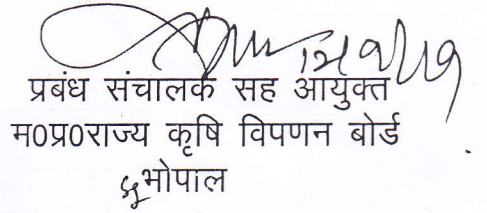 प्रबंध संचालक सह आयुक्त
म0प्र0राज्य कृषि विपणन बोर्ड
भोपाल